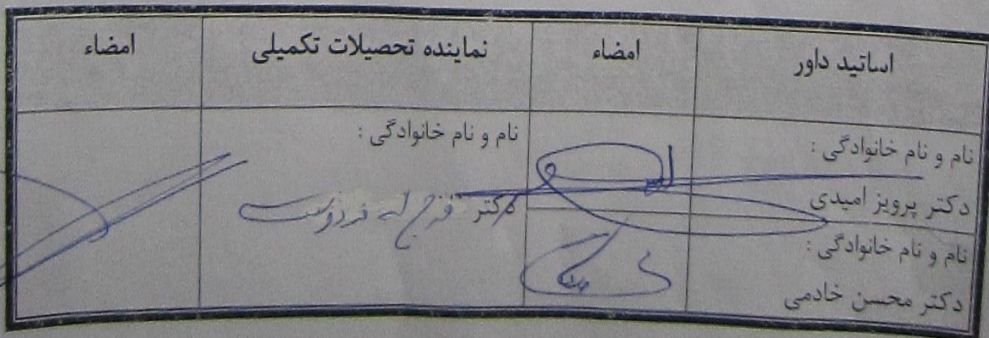 اساتید داور
امضاء
نماینده تحصیلات تکمیلی
امضاء
نام و نام خانوادگی :
دکتر پرویز امیدی
نام و نام خانوادگی :
دکتر محسن خادمی
نام و نام خانوادگی :
دکتر فرج اله فردوست